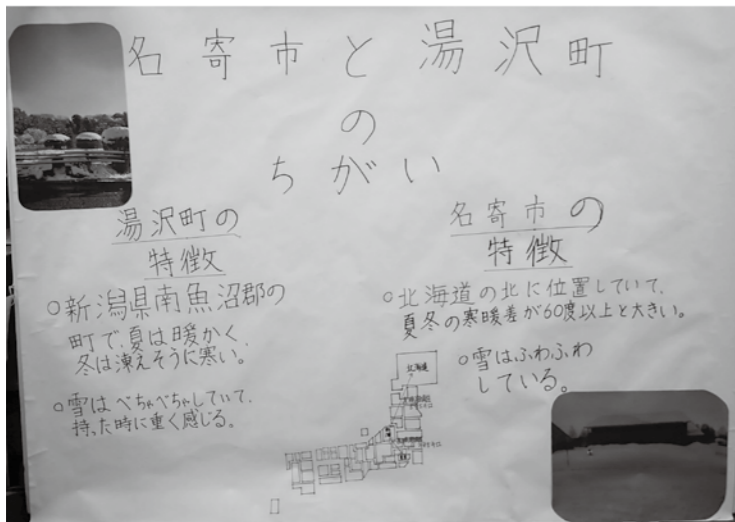 名寄市と湯沢町
の
ちがい
湯沢町の
特徴
○新潟県南魚沼郡の
町で、夏は暖かく、
冬は凍えそうに寒い。
○雪はべちゃべちゃしていて、
持った時に重く感じる。
名寄市の
特徴
○北海道の北に位置していて、
夏冬の寒暖差が60度以上と大きい。
○雪はふわふわ
している。
北海道